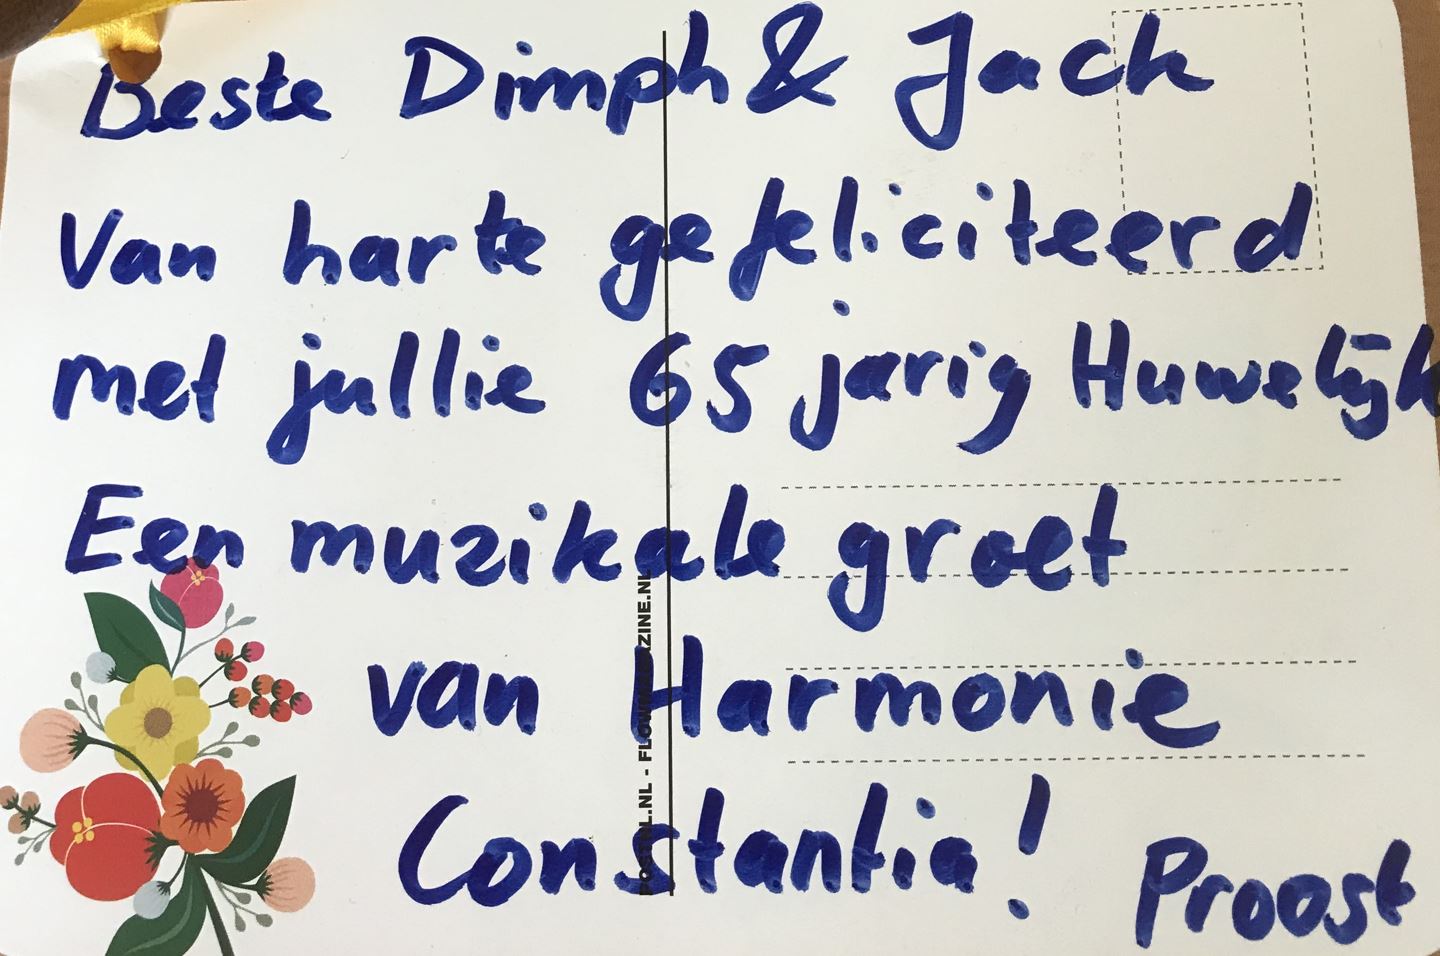 Beste Dimph & Jack
Van harte gefeliciteerd
met jullie 65 jarig Huwelijk
Een muzikale groet
van Harmonie
Constantia!
Proost